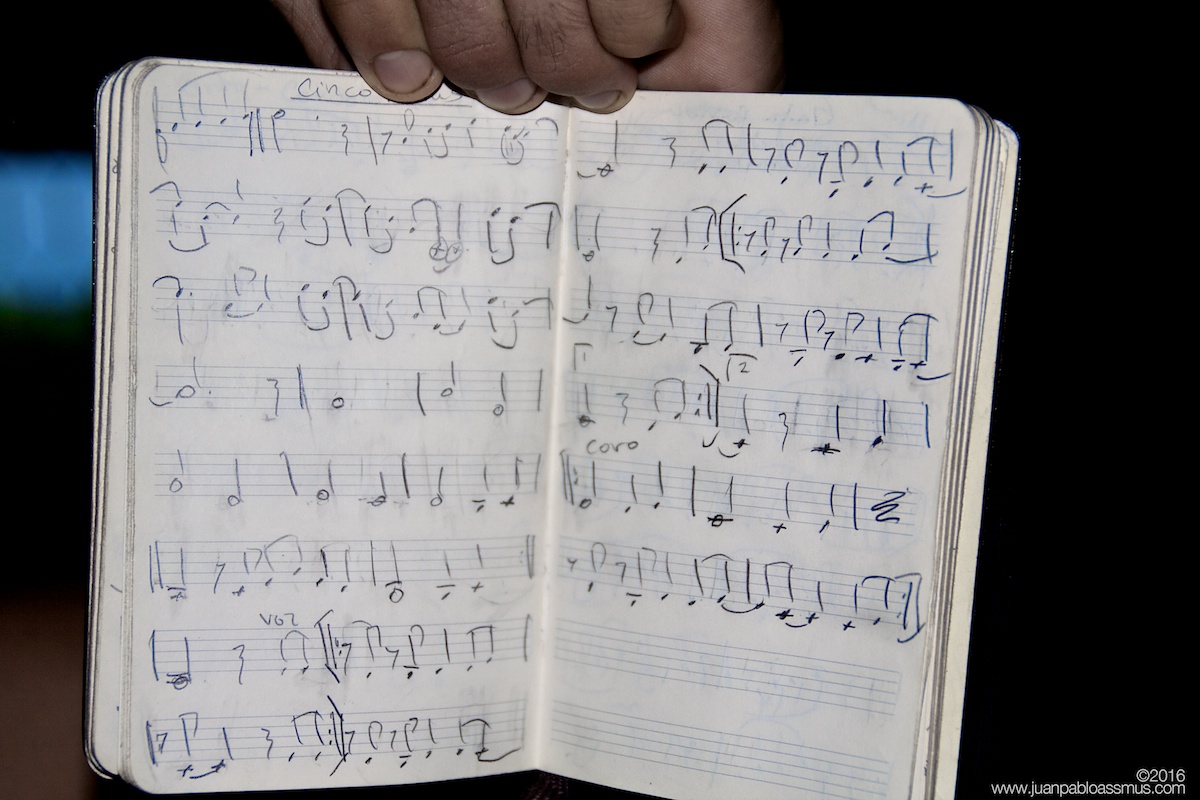 Cinco
1
2
coro
voz
©2016
www.juanpabloassmus.com